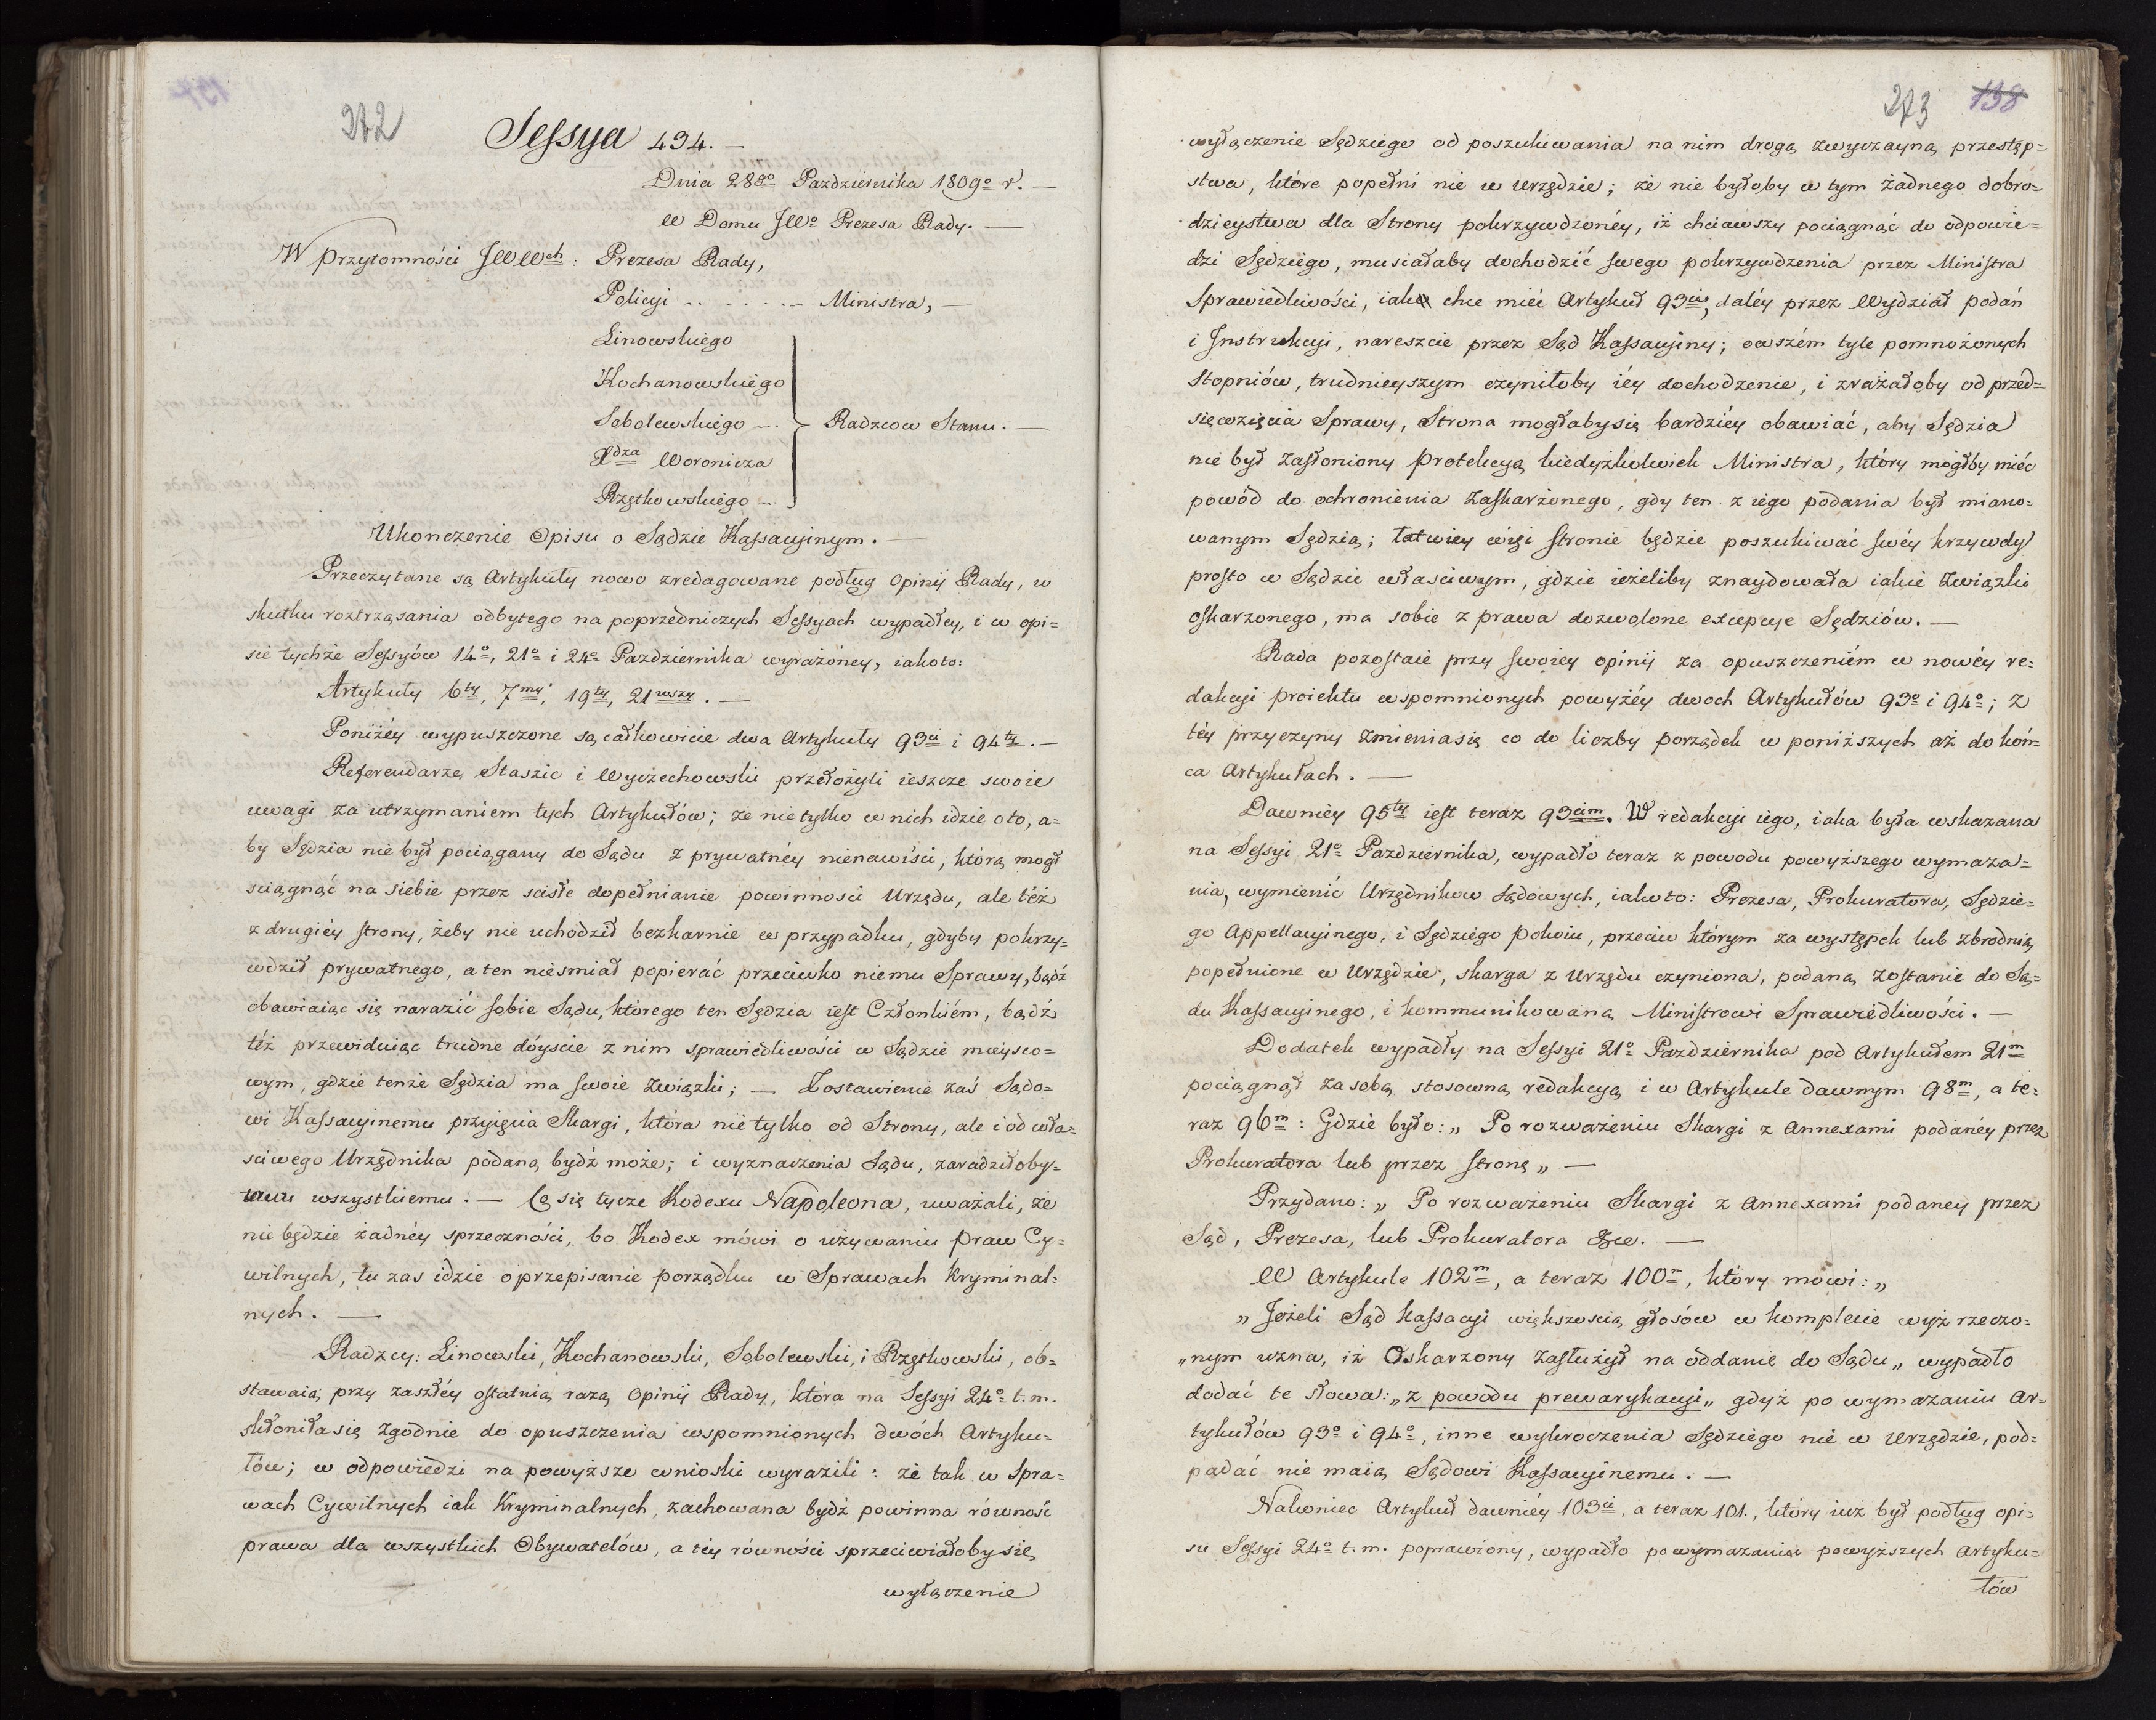 272
Sessya 434. —
Dnia 28go Pazdziernika 1809o r. —
W Domu JWo Prezesa Rady. —
W Przytomności JWWch: Prezesa Rady,
Policyi . . . . . . . . Ministra, —
Linowskiego
Kochanowskiego
Sobolewskiego ... Radzcow Stanu. —
Xdza Woronicza
Rzętkowskiego ...
Ukonczenie Opisu o Sądzie Kassacyinym. —
Przeczytane są Artykuły nowo zredagowane podług Opinij Rady, w
skutku roztrząsania odbytego na poprzedniczych Sessyach wypadłey, i w opi=
sie tychże Sessyów 14o, 21o i 24o Pazdziernika wyrażoney, iakoto:
Artykuły 6ty, 7my, 19ty, 21wszy. —
Poniżéy wypuszczone są całkowicie dwa Artykuły 93ci i 94ty. —
Referendarze Staszic i Wyczechowski przełożyli ieszcze swoie
uwagi za utrzymaniem tych Artykułów; że nie tylko w nich idzie oto, a=
by Sędzia nie był pociągany do Sądu z prywatnéy nienawiści, którą mogł
sciągnąć na siebie przez scisłe dopełnianie powinnosci Urzędu, ale téż
z drugiéy strony, żeby nie uchodził bezkarnie w przypadku, gdyby pokrzy=
wdził prywatnego, a ten niesmiał popierać przeciwko niemu Sprawy, bądź
obawiaiąc się narazić sobie Sądu, którego ten Sędzia iest Członkiém, bądź
téż przewiduiąc trudne dóyscie z nim sprawiedliwości w Sądzie mieysco=
wym, gdzie tenże Sędzia ma swoie związki; — Zostawienie zaś Sądo=
wi Kassacyinemu przyięcia Skargi, która nie tylko od Strony, ale i od wła=
sciwego Urzędnika podaną bydź może; i wyznaczenia Sądu, zaradziłoby=
temu wszystkiemu. — Co się tycze Kodexu Napoleona, uważali, że
nie będzie żadnéy sprzeczności, bo Kodex mówi o używaniu Praw Cy=
wilnych, tu zas idzie o przepisanie porządku w Sprawach Kryminal=
nych. —
Radzcy: Linowski, Kochanowski, Sobolewski, i Rzętkowski, ob=
stawaią przy zaszłéy ostatnią razą Opinij Rady, która na Sessyi 24o t. m.
skłoniła się zgodnie do opuszczenia wspomnionych dwóch Artyku=
łów; w odpowiedzi na powyższe wnioski wyrazili: że tak w Spra=
wach Cywilnych iak Kryminalnych, zachowana bydź powinna równość
prawa dla wszystkich Obywatelów, a téy równości sprzeciwiałoby się
wyłączenie
273 138
wyłączenie Sędziego od poszukiwania na nim drogą zwyczayną przestęp=
stwa, które popełni nie w urzędzie; że nie byłoby w tym żadnego dobro=
dzieystwa dla Strony pokrzywdzonéy, iż chciawszy pociągnąć do odpowie=
dzi Sędziego, musiałaby dochodzić swego pokrzywdzenia przez Ministra
Sprawiedliwości, iak chce mieć Artykuł 93ci, daléy przez Wydział podań
i Instrukcyi, nareszcie przez Sąd Kassacyiny; owszém tyle pomnożonych
stopniów, trudnieyszym czyniłoby iéy dochodzenie, i zrażałoby od przed=
sięwzięcia Sprawy, Strona mogłaby się bardziéy obawiać, aby Sędzia
nie był zasłoniony Protekcyą kiedyżkolwiek Ministra, który mógłby mieć
powód do ochronienia zaskarżonego, gdy ten z iego podania był miano=
wanym Sędzią; łatwiey więc stronie będzie poszukiwać swéy krzywdy
prosto w Sądzie własciwym, gdzie ieżeliby znaydowała iakie związki
oskarzonego, ma sobie z prawa dozwolone excepcye Sędziów. —
Rada pozostaie przy swoiey opinij za opuszczeniém w nowéy re=
dakcyi proiektu wspomnionych powyżéy dwoch Artykułów 93o i 94o; z
téy przyczyny zmienia się co do liczby porządek w poniższych aż do koń=
ca Artykułach. —
Dawniéy 95ty iest teraz 93cim. W redakcyi iego, iaka była wskazana
na Sessyi 21o Pazdziernika, wypadło teraz z powodu powyższego wymaza=
nia, wymienić Urzędnikow sądowych, iakoto: Prezesa, Prokuratora, Sędzie=
go Appellacyinego, i Sędziego Pokoiu, przeciw którym za występek lub zbrodnią
popełnione w Urzędzie, skarga z Urzędu czyniona, podaną zostanie do Są=
du Kassacyinego, i kommunikowaną Ministrowi Sprawiedliwości. —
Dodatek wypadły na Sessyi 21o Pazdziernika pod Artykułem 21m
pociągnął za sobą stosowną redakcyą i w Artykule dawnym 98m, a te=
raz 96m: Gdzie było: „ Po rozważeniu Skargi z Annexami podanéy przez
Prokuratora lub przez stronę „ —
Przydano: „ Po rozważeniu Skargi z Annexami podaney przez
Sąd, Prezesa, lub Prokuratora &c. —
W Artykule 102m, a teraz 100m, który mowi: „
„ Jeżeli Sąd Kassacyi większoscią głosów w komplecie wyż rzeczo=
„nym uzna, iż Oskarzony zasłużył na oddanie do Sądu „ wypadło
dodać te słowa: „z powodu prewarykacyi„ gdyż po wymazaniu Ar=
tykułów 93o i 94o, inne wykroczenia Sędziego nie w Urzędzie, pod=
padać nie maią Sądowi Kassacyinemu. —
Nakoniec Artykuł dawniéy 103ci, a teraz 101., który iuż był podług opi=
su Sessyi 24o t. m. poprawiony, wypadło po wymazaniu powyższych Artyku=
łów